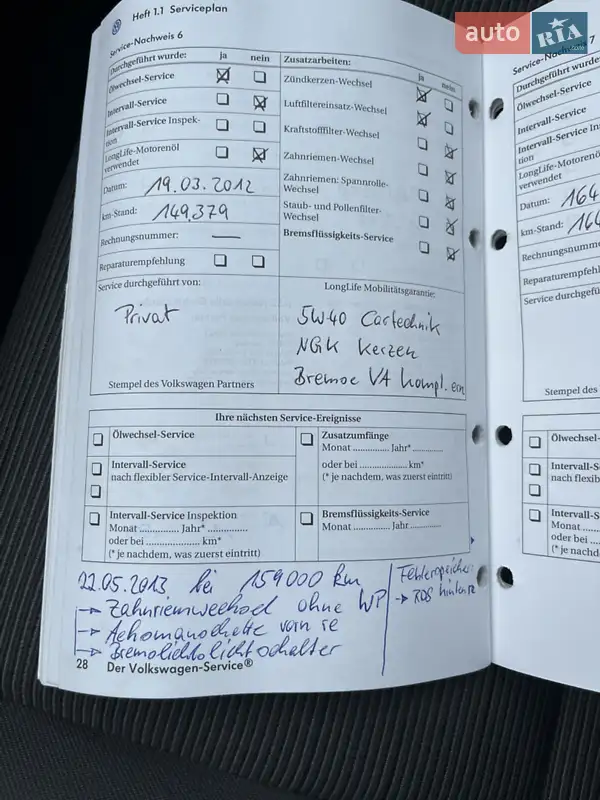 Heft 1.1 Serviceplan
auto RIA
Service-Nachweis 6
Durchgeführt wurde: ja nein
Ölwechsel-Service
Intervall-Service
Intervall-Service Inspek-
tion
LongLife-Motorenöl
verwendet
Datum: 19.03.2012
km-Stand: 149.379
Rechnungsnummer: —
Reparaturempfehlung
Zusatzarbeiten: ja nein
Zündkerzen-Wechsel
Luftfiltereinsatz-Wechsel
Kraftstofffilter-Wechsel
Zahnriemen-Wechsel
Zahnriemen: Spannrolle-
Wechsel
Staub- und Pollenfilter-
Wechsel
Bremsflüssigkeits-Service
Service durchgeführt von:
Privat
Stempel des Volkswagen Partners
LongLife Mobilitätsgarantie:
5W40 Cartechnik
NGK Kerzen
Bremse VA kompl. ern
Ihre nächsten Service-Ereignisse
Ölwechsel-Service
Intervall-Service
nach flexibler Service-Intervall-Anzeige
Intervall-Service Inspektion
Monat .............. Jahr* ..............
oder bei ...................... km*
(* je nachdem, was zuerst eintritt)
Zusatzumfänge
Monat .............. Jahr* ............
oder bei .................. km*
(* je nachdem, was zuerst eintritt)
Bremsflüssigkeits-Service
Monat .............. Jahr ............
22.05.2013 bei 159000 km
→ Zahnriemwechsel ohne WP
→ Achsmanschette vorn re
→ Bremslichtslichtschalter
Fehlerspeicher
→ RDS hinten re
28 Der Volkswagen-Service®
Service-Nachweis 7
Durchgeführt wurde:
Ölwechsel-Service
Intervall-Service
Intervall-Service In
tion
LongLife-Motorenöl
verwendet
Datum: 164
km-Stand: 164
Rechnungsnumme
Reparaturempfehl
Service durchgefü
Stempel des
Ölwechsel-
Intervall-S
nach flexib
Intervall-S
Monat ......
oder bei ....
(* je nachd